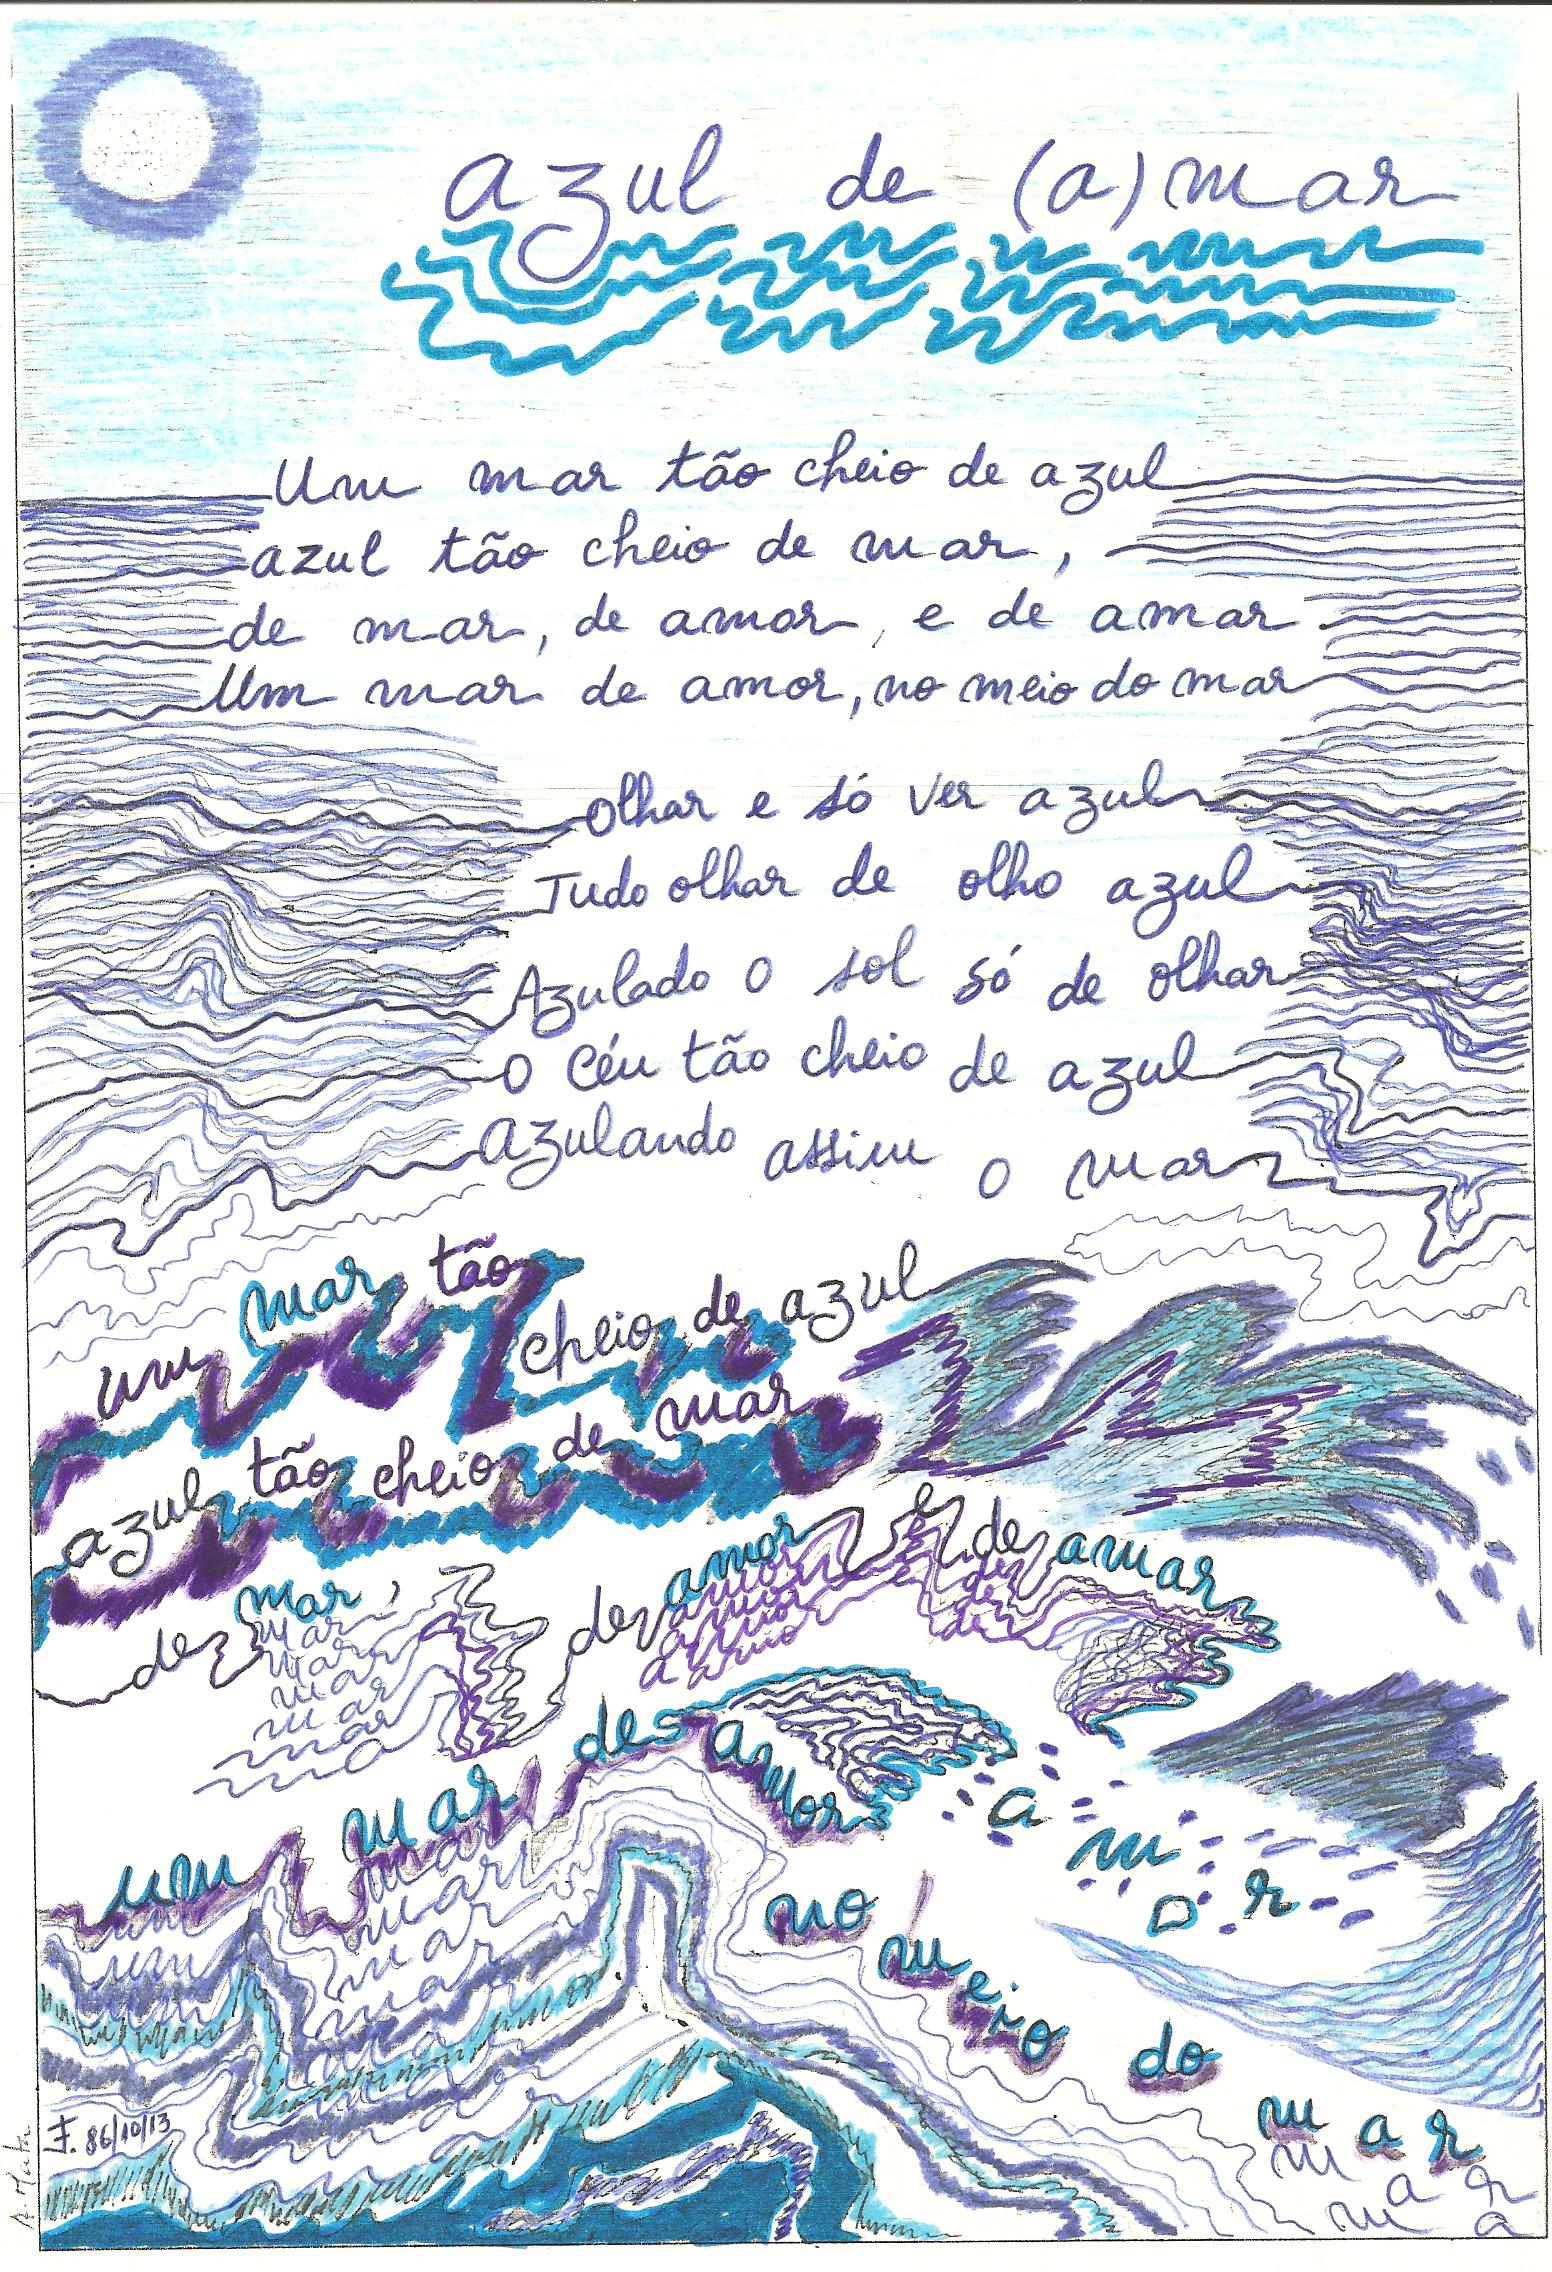 azul de (a)mar
Um mar tão cheio de azul
azul tão cheio de mar,
de mar, de amor, e de amar
Um mar de amor, no meio do mar
Olhar e só ver azul
Tudo olhar de olho azul
Azulado o sol só de olhar
O Céu tão cheio de azul
Azulando assim o mar
um mar tão cheio de azul
azul tão cheio de mar
de mar, de amor e de amar
mar amor de
mar amor de
mar amor de
mar amor
mar
um mar des amor
a m o r
um mar
um mar
um mar
mar
mar
no meio do mar
m a r
m a
F. 86/10/13